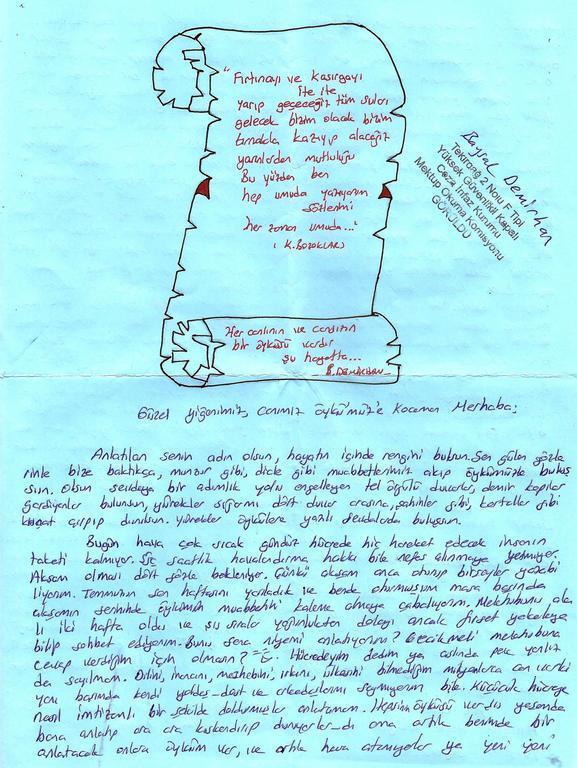 "Fırtınayı ve Kasırgayı
ite ite
yarıp geçeceğiz tüm suları
gelecek bizim olacak bizim
tırnakla kazıyıp alacağız
yarınlardan mutluluğu
Bu yüzden ben
hep umuda yazıyorum
sözlerimi
her zaman umuda..."
(K.BOZOKLAR)
Her canlının ve cansızın
bir öyküsü vardır
şu hayatta...
B.DEMİRHAN
Baysal Demirhan
Tekirdağ 2 Nolu F Tipi
Yüksek Güvenlikli Kapalı
Ceza İnfaz Kurumu
Mektup Okuma Komisyonu
GÖRÜLDÜ
Güzel yiğenimiz, canımız öykü'müz'e Kocaman Merhaba;
Anlatılan senin adın olsun, hayatın içinde rengini bulsun. Sen gülen gözle
rinle bize baktıkça, munzur gibi, dicle gibi muhabbetlerimiz akıp öykümüzle buluş
sun. Olsun sevdaya bir adımlık yolu engelleyen tel örgülü duvarlar, demir kapılar
gardiyanlar bulunsun, yürekler sığarmı dört duvar arasına, şahinler gibi, kartallar gibi
kanat çırpıp dururlar. yürekler öykülere yazılı sevdalarda buluşsun.
Bugün hava çok sıcak gündüz hücrede hiç hareket edecek insanın
takati kalmıyor. Üç saatlik havalandırma hakkı bile nefes alınmaya yetmiyor.
Akşam olması dört gözle bekleniyor. Çünkü akşam anca oturup birşeyler yazabi
liyorum. Temmuzun son haftasını yarıladık ve bende oturmuşum masa başında
akşamın serininde öykümün muhabbetini kaleme almaya çabalıyorum. Mektubunu ala
lı iki hafta oldu ve şu sıralar yoğunluktan dolayı ancak fırsat yakalaya
bilip sohbet ediyorum. Bunu sana niyemi anlatıyorum? Gecikmeli mektubuna
cevap verdiğim için olmasın? Hücredeyim dedim ya aslında pek yalnız
da sayılmam. Dilini, inancını, mezhebini, ırkını, ülkesini bilmediğim milyonlarca can
yanı başımda kendi yoldaş, dost ve arkadaşlarımı saymıyorum bile. Küçücük hücreye
nasıl imtizamlı bir şekilde doldurmuşlar anlatamam. Hepsinin öyküsü vardır yaşamda
bana anlatıp ara ara kıskandırıp duruyorlar_dı ama artık benimde bir
anlatacak onlara öyküm var, ve artık hava atamıyorlar ya yeni yeni